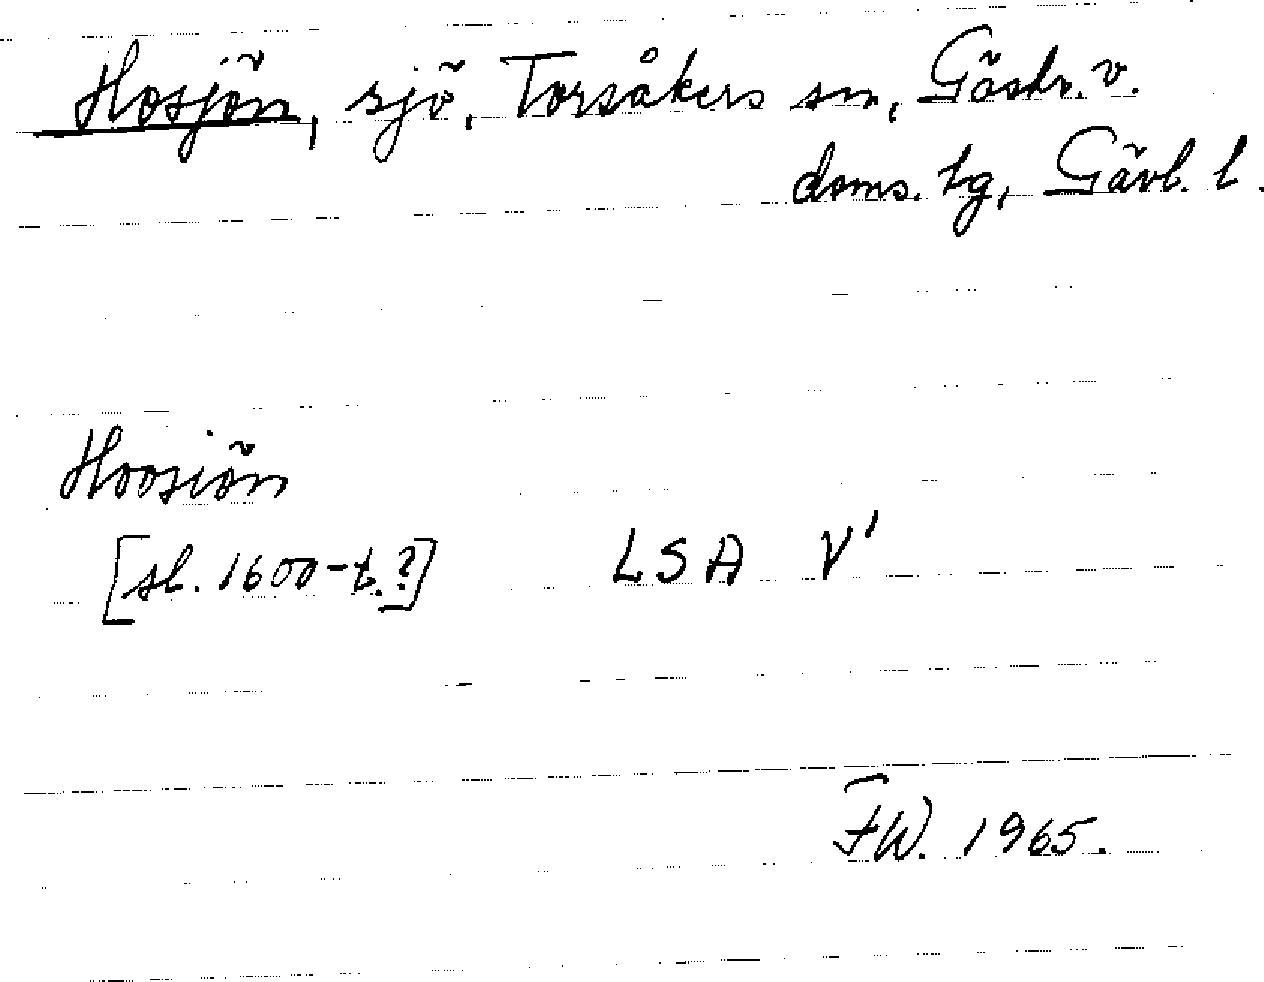 Hosjön, sjö, Torsåkers sn, Gästr. v.
doms. tg, Gävl. l.
Hoosiön
[sl. 1600-t.?] LSA V'
FW. 1965.